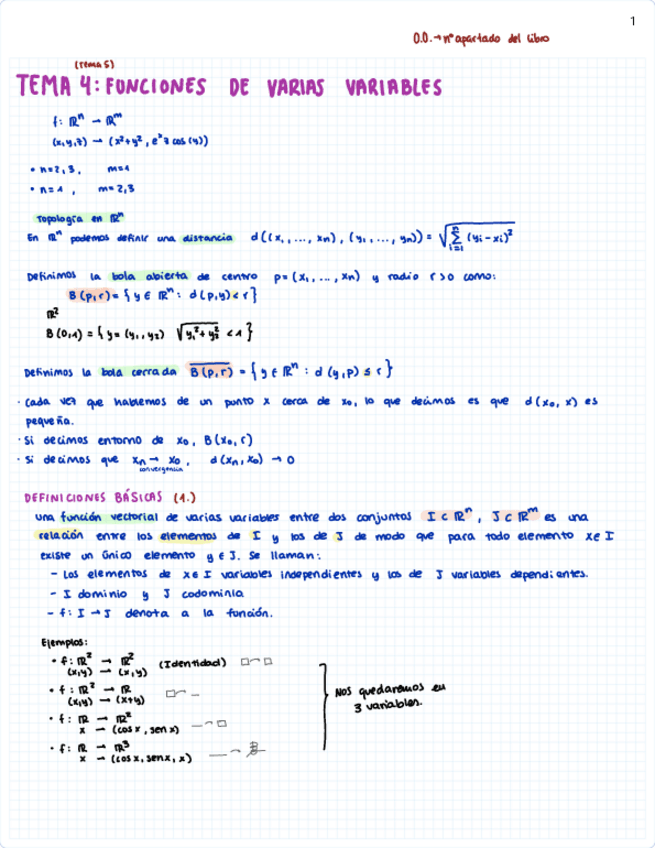 1
0.0. → nº apartado del libro
(Tema 5)
TEMA 4: FUNCIONES DE VARIAS VARIABLES
f: ℝⁿ → ℝᵐ
(x,y,z) → (x²+y², eˣ z cos(y))
• n=2,3, m=1
• n=1, m=2,3
Topología en ℝⁿ
En ℝⁿ podemos definir una distancia d((x₁,..., xn), (y₁,..., yn)) = √(∑ᵢ₌₁ⁿ (yi-xi)²)
Definimos la bola abierta de centro p=(x₁,...,xn) y radio r>0 como:
B(p,r) = { y ∈ ℝⁿ : d(p,y) < r }
ℝ²
B(0,1) = { y=(y₁,y₂) √(y₁²+y₂²) < 1 }
Definimos la bola cerrada B̅(̅p̅,̅r̅)̅ = { y ∈ ℝⁿ : d(y,p) ≤ r }
· Cada vez que hablemos de un punto x cerca de x₀, lo que decimos es que d(x₀, x) es
pequeña.
· Si decimos entorno de x₀, B(x₀, r)
· Si decimos que xn → x₀, d(xn, x₀) → 0
convergencia
DEFINICIONES BÁSICAS (1.)
Una función vectorial de varias variables entre dos conjuntos I ⊂ ℝⁿ, J ⊂ ℝᵐ es una
relación entre los elementos de I y los de J de modo que para todo elemento x∈I
existe un único elemento y∈J. Se llaman:
- Los elementos de x∈I variables independientes y los de J variables dependientes.
- I dominio y J codominio
- f: I → J denota a la función.
Ejemplos:
• f: ℝ² → ℝ² (Identidad)
(x,y) → (x,y)
• f: ℝ² → ℝ
(x,y) → (x+y)
• f: ℝ → ℝ²
x → (cos x, sen x)
• f: ℝ → ℝ³
x → (cos x, senx, x)
Nos quedaremos en
3 variables.